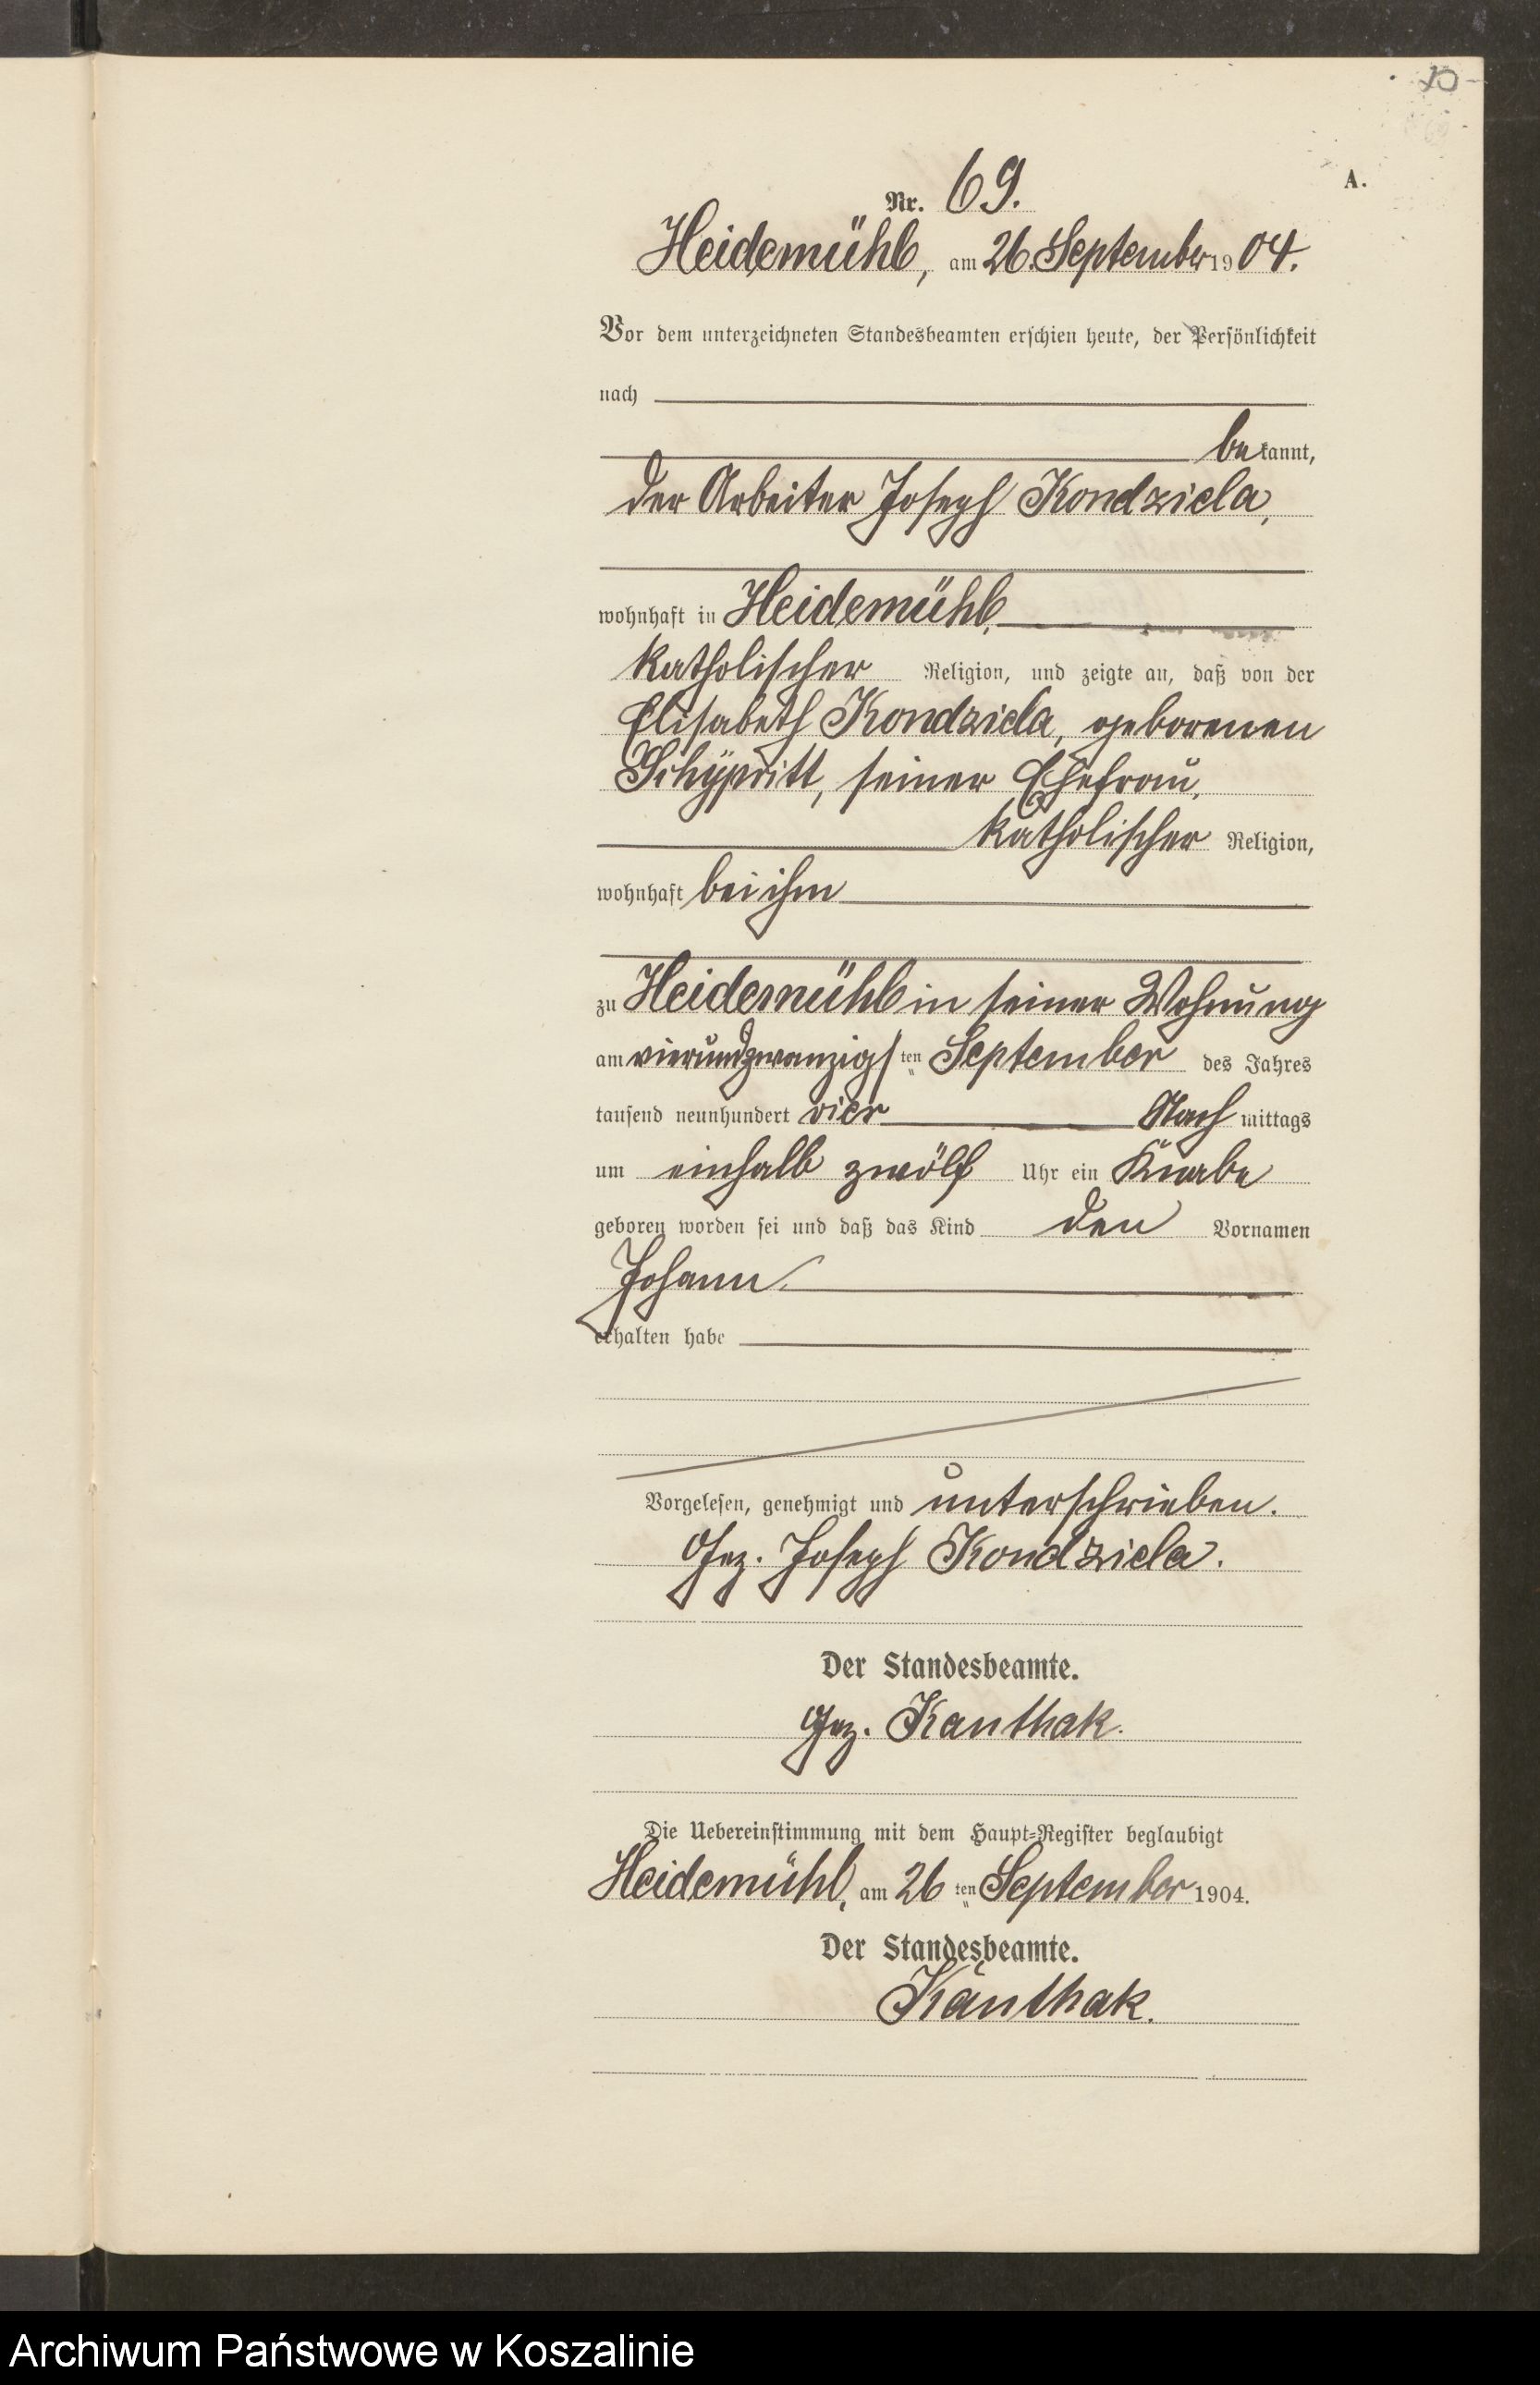 A.
Nr. 69.
Heidemühl, am 26. September 1904.
Vor dem unterzeichneten Standesbeamten erschien heute, der Persönlichkeit
nach
bekannt,
der Arbeiter Joseph Kondziela,
wohnhaft in Heidemühl,
katholischer Religion, und zeigte an, daß von der
Elisabeth Kondziela, geborenen
seiner Ehefrau,
katholischer Religion,
wohnhaft bei ihm
zu Heidemühl in seiner Wohnung
am vierundzwanzigsten September des Jahres
tausend neunhundert vier Nachmittags
um einhalb zwölf Uhr ein Knabe
geboren worden sei und daß das Kind den Vornamen
Johann
erhalten habe
Vorgelesen, genehmigt und unterschrieben.
Gez. Joseph Kondziela.
Der Standesbeamte.
Gez. Kanthak.
Die Uebereinstimmung mit dem Haupt-Register beglaubigt
Heidemühl, am 26 ten September 1904.
Der Standesbeamte.
Kanthak.
Archiwum Państwowe w Koszalinie